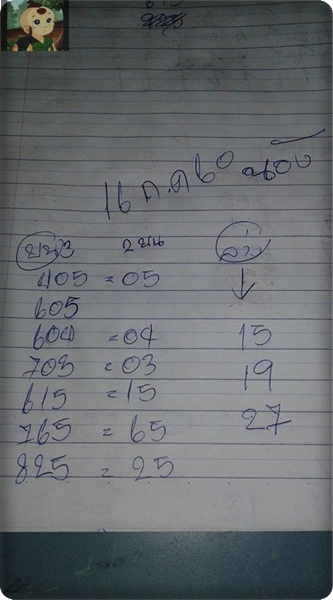 16 ก.ค 60 น้อง
บน3 2บน ล่าง
405 = 05
605
604 = 04 15
703 = 03 19
615 = 15
765 = 65 27
825 = 25